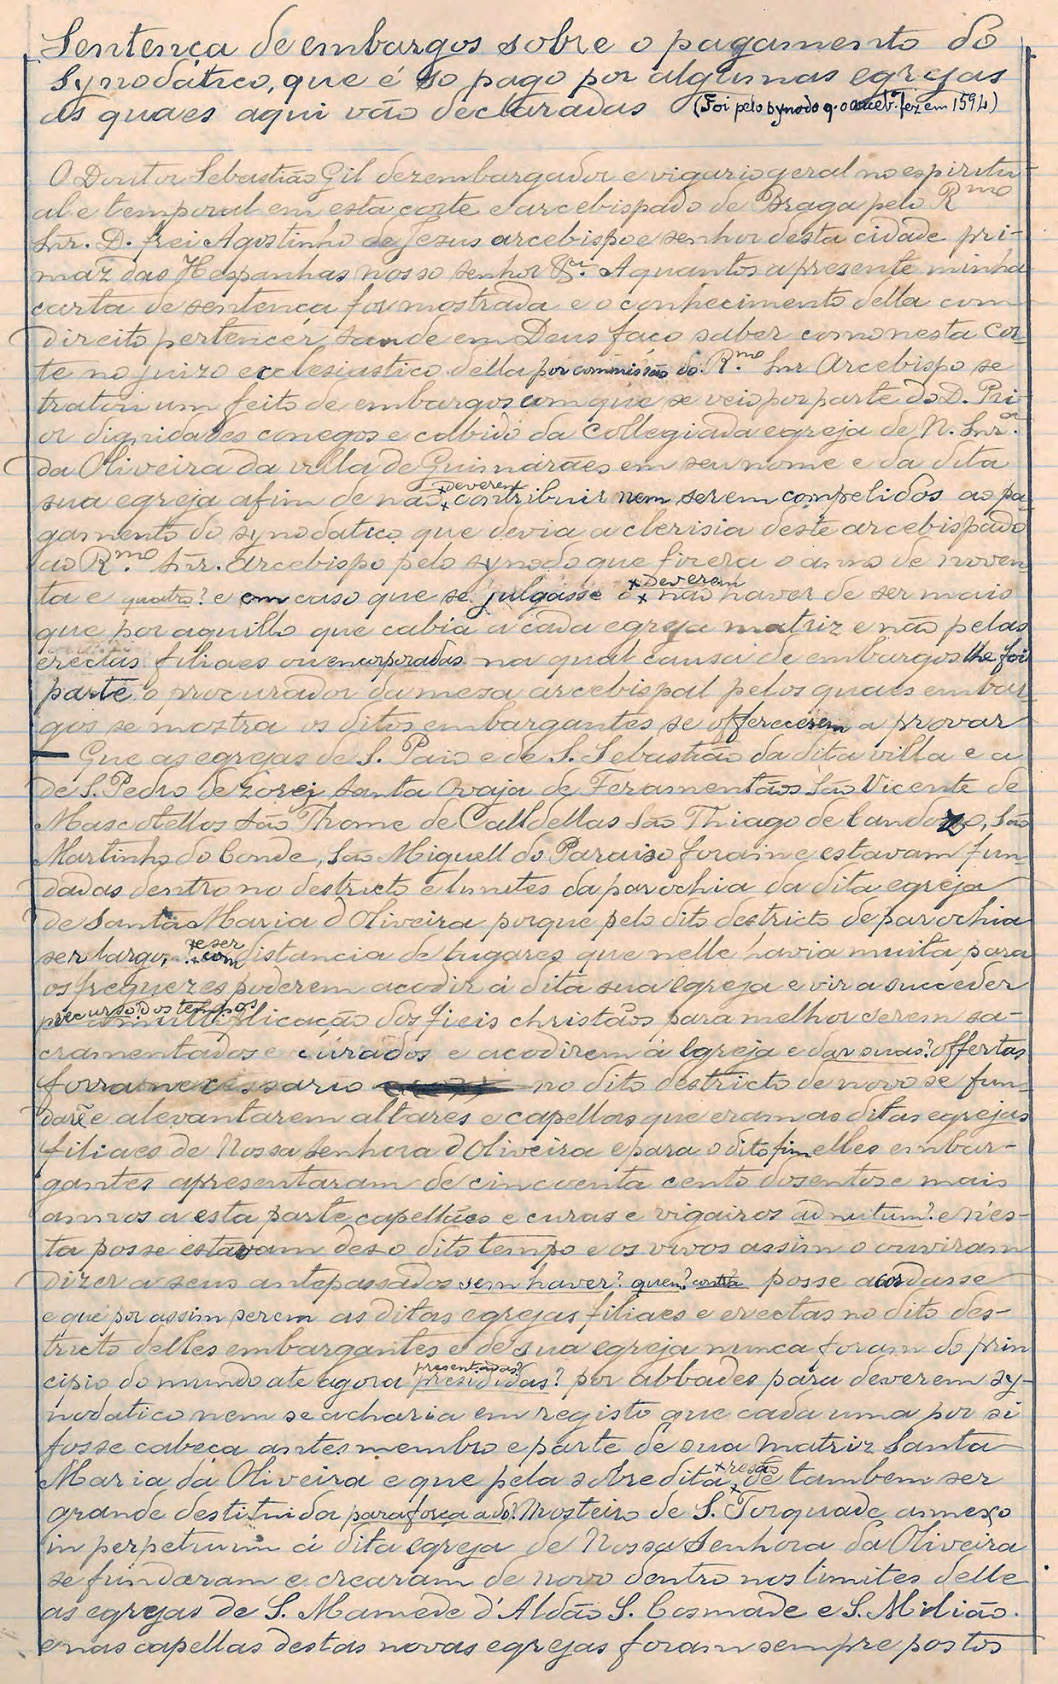 Sentença de embargos sobre o pagamento do
synodático, que é so pago por algumas egrejas
as quaes aqui vão declaradas (Foi pelo synodo q. o arceb.º fez em 1594)
O Doutor Sebastião Gil dezembargador e vigario geral no espiritu-
al e temporal em esta corte e arcebispado de Braga pelo Rmo
Snr. D. frei Agostinho de Jezus arcebispo e senhor desta cidade pri-
maz das Hespanhas nosso senhor &ª. A quantos a presente minha
carta de sentença for mostrada e o conhecimento della com
direito pertencer, saude em Deus faço saber como nesta Cor-
te no juizo ecclesiastico della por commissão do R.mo Snr Arcebispo se
tratou um feito de embargos com que se veio por parte do D. Pri-
or dignidades conegos e cabido da Collegiada egreja de N. Snr.ª
da Oliveira da villa de Guimarães em seu nome e da dita
sua egreja afim de não × deverem × contribuir nem serem compelidos ao pa-
gamento do synodatico que devia a clerisia deste arcebispado
ao R.mo Snr. Arcebispo pelo synodo que fizera o anno de noven-
ta e quatro? e em caso que se julgasse o × deverem × não haver de ser mais
que por aquillo que cabia a cada egreja matriz e não pelas
erectas filiaes ou encorporadas na qual causa de embargos lhe foi
parte o procurador da mesa arcebispal pelos quaes embar-
gos se mostra os ditos embargantes se offerecerem a provar
— Que as egrejas de S. Paio e de S. Sebastião da dita villa e a
de S. Pedro de Azorej Santa Ovaja de Feramentãos São Vicente de
Mascotellos São Thome de Calldellas São Thiago de Candozo, São
Martinho do Conde, São Miguell do Paraiso foram e estavam fun-
dadas dentro no destricto e limites da parochia da dita egreja
de Santa Maria d Oliveira porque pelo dito destricto de parochia
ser largo, × e ser × com distancia de lugares que nelle havia muita para
os freguezes poderem acodir á dita sua Egreja e vir a succeder
recurso dos tempos
multiplicação dos fieis christãos para melhor serem sa-
cramentados e curados e acodirem á Egreja e dar suas? offertas
forra necessario no dito destricto de novo se fun-
darẽ e alevantarem altares e capellas que eram as ditas egrejas
filiaes de Nossa Senhora d Oliveira e para o dito fim elles embar-
gantes apresentaram de cincoenta cento dosentos e mais
annos a esta parte capellães e curas e vigairos ad nutum? e n'es-
ta posse estavam des o dito tempo e os vivos assim o ouviram
dizer a seus antepassados sem haver? quem? contra posse acordasse
e que por assim serem as ditas egrejas filiaes e erectas no dito des-
tricto delles embargantes e de sua egreja nunca foram do prin-
cipio do mundo ate agora presentadas? presididas? por abbades para deverem sy-
nodatico nem se acharia em registo que cada uma por si
fosse cabeça antes membro e parte de sua matriz Santa
Maria da Oliveira e que pela sobredita × resão × de tambem ser
grande destituida para força a do? Mosteiro de S. Torquade annexo
in perpetuum á dita egreja de Nossa Senhora da Oliveira
se fundaram e crearam de novo dentro nos limites delle
as egrejas de S. Mamede d'Aldão S. Cosmade e S. Midião.
e nas capellas destas novas egrejas foram sempre postos